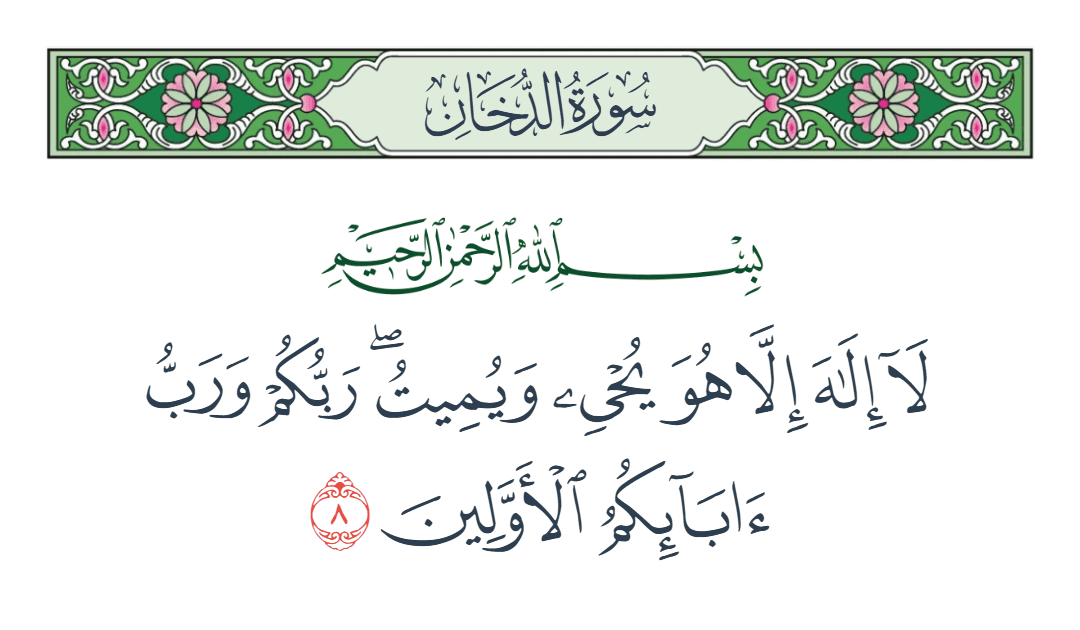 سُورَةُ الدُّخَانِ
بِسْمِ ٱللَّهِ ٱلرَّحْمَٰنِ ٱلرَّحِيمِ
لَآ إِلَٰهَ إِلَّا هُوَ يُحْىِۦ وَيُمِيتُ ۖ رَبُّكُمْ وَرَبُّ
ءَابَآئِكُمُ ٱلْأَوَّلِينَ ٨